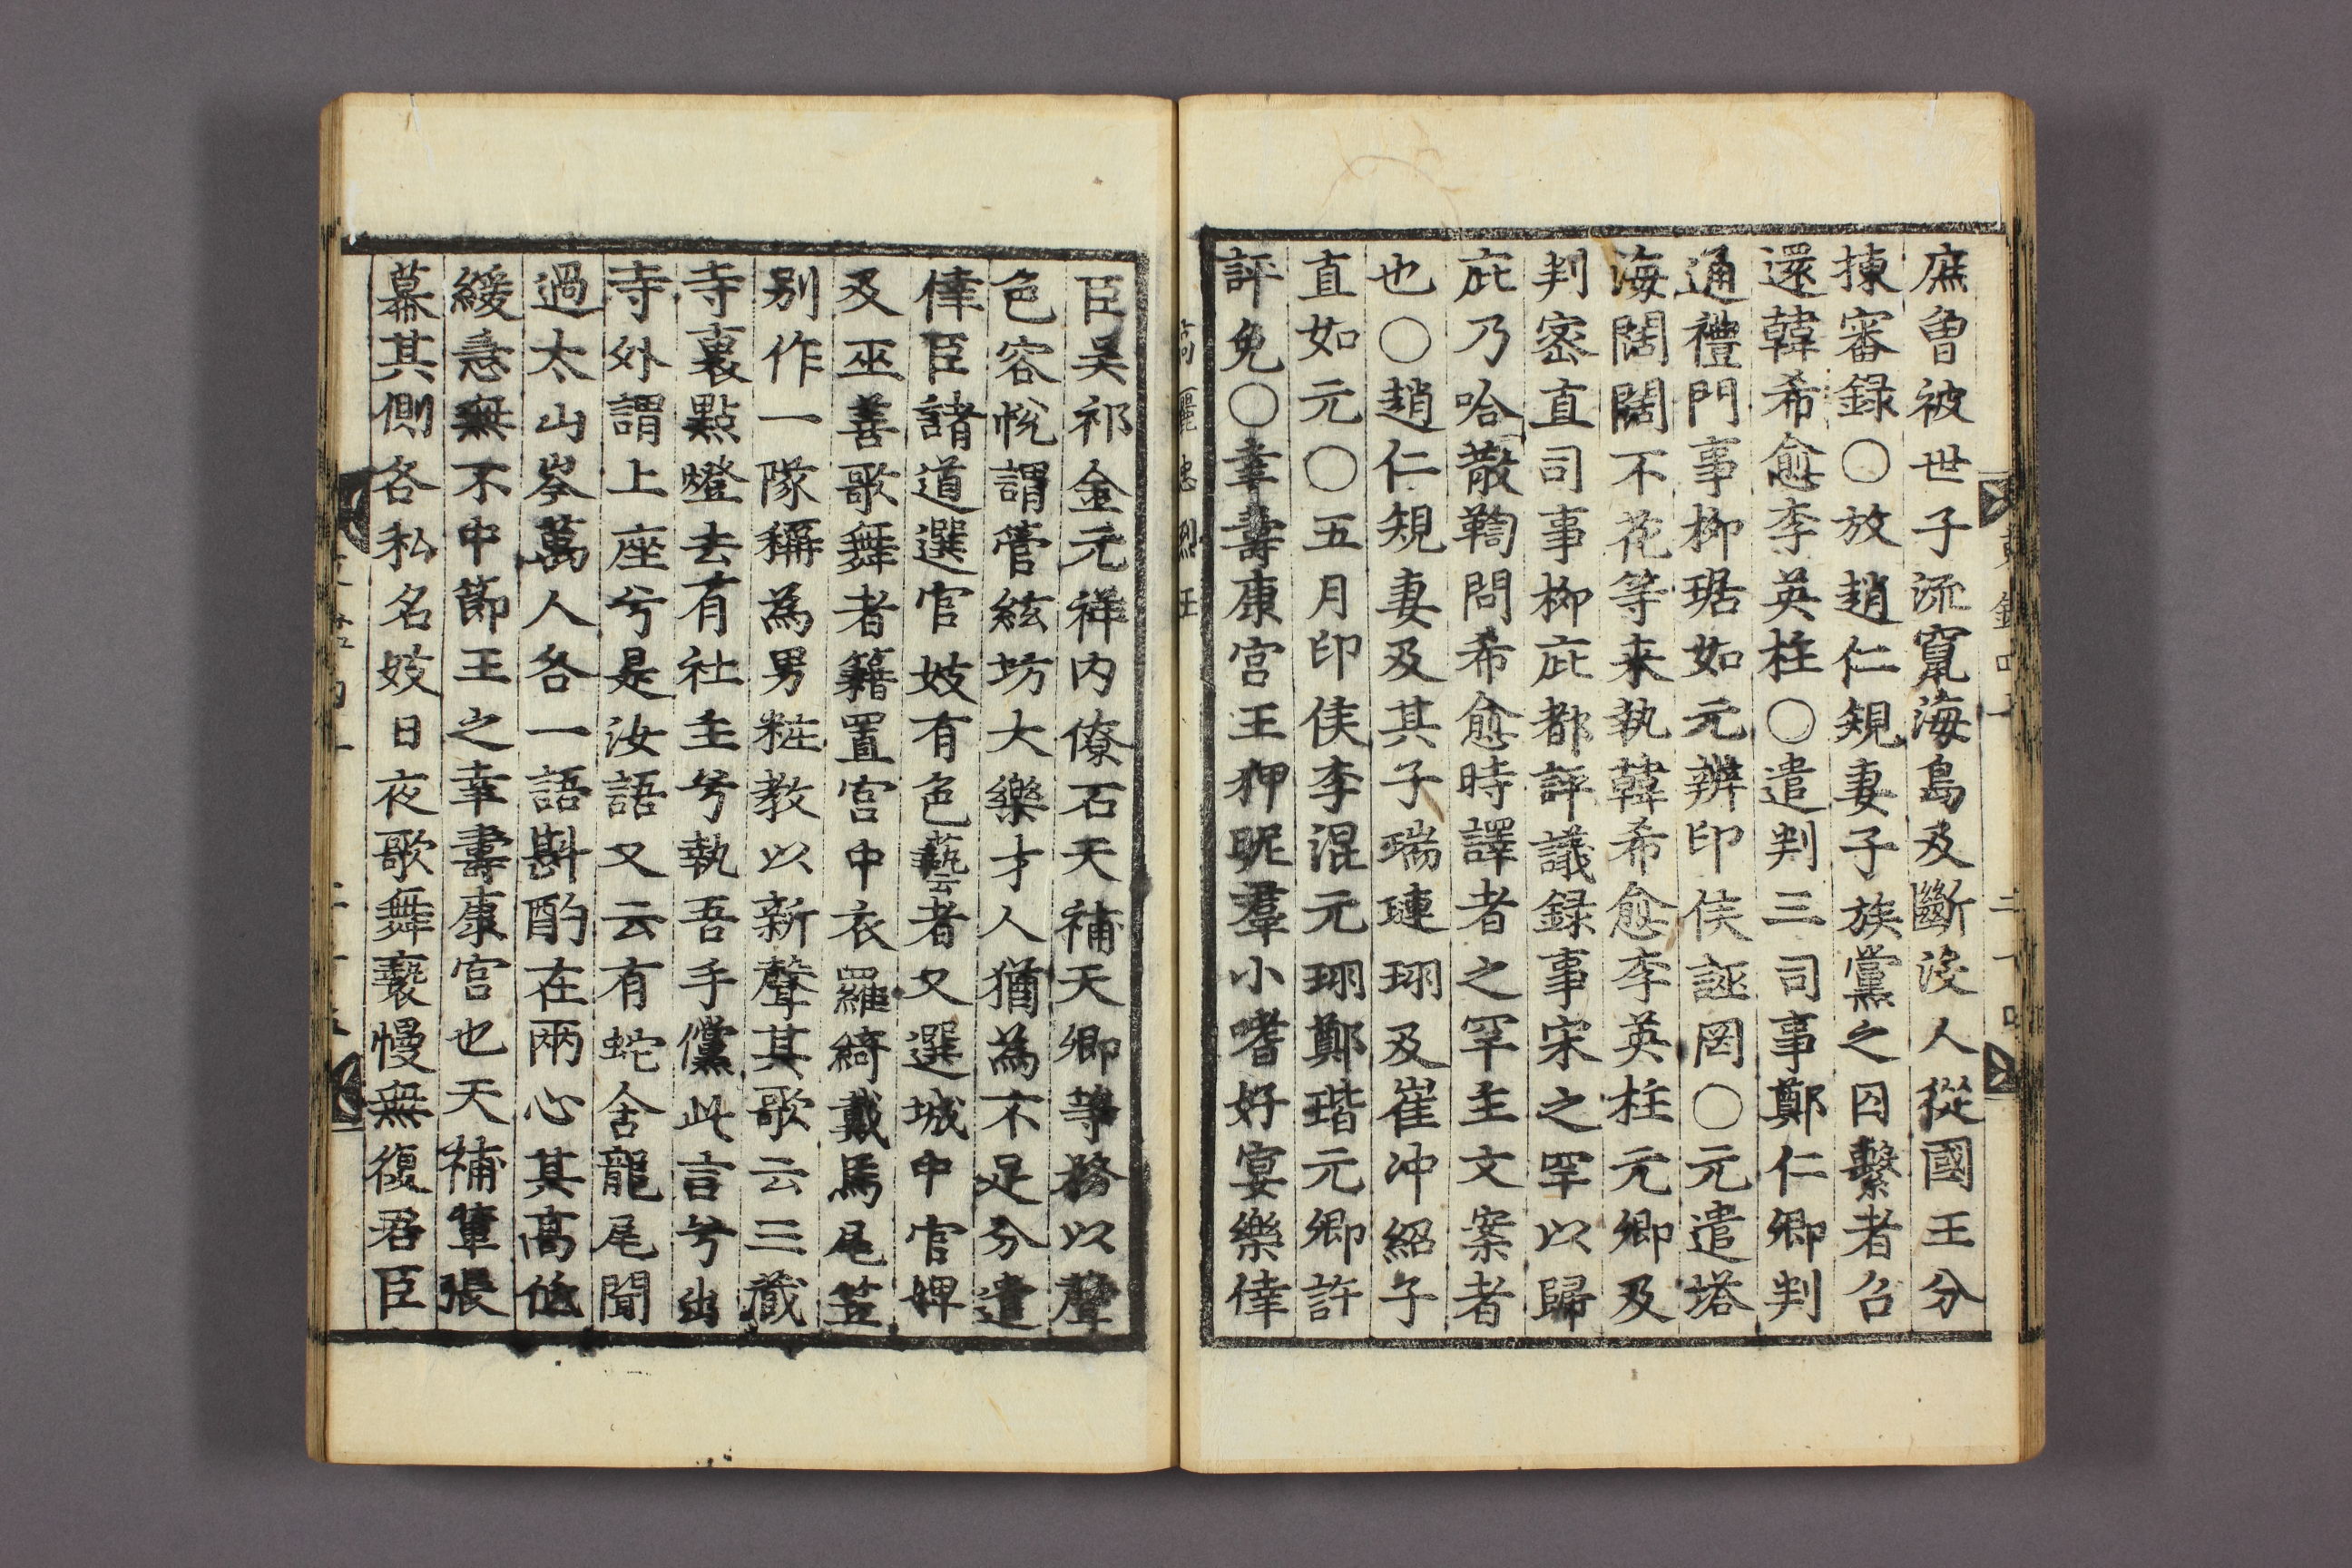 庶曾被世子流竄海島及斷没人從國王分
揀審録○放趙仁䂓妻子族黨之囚繫者召
還韓希愈李英柱○遣判三司事鄭仁卿判
通禮門事柳琚如元辨印侯誣罔○元遣塔
海闊闊不花等来執韓希愈李英柱元卿及
判宻直司事柳庇都評議録事宋之罕以歸
庇乃哈散鞫問希愈時譯者之罕主文案者
也○趙仁䂓妻及其子瑞璉珝及崔冲紹子
直如元○五月印侯李混元珝鄭瑎元卿許
評免○幸壽康宫王狎昵羣小嗜好宴樂倖
臣吴祁金元祥内僚石天補天卿等務以聲
色容悅謂管絃坊大樂才人猶為不足分遣
倖臣諸道選官妓有色藝者又選城中官婢
及巫善歌舞者籍置宫中衣羅綺戴馬尾笠
别作一隊稱為男粧教以新聲其歌云三藏
寺裏點燈去有社主兮執吾手儻此言兮出
寺外謂上座兮是汝語又云有蛇含龍尾聞
過太山岑萬人各一語斟酌在兩心其高低
緩急無不中節王之幸壽康宫也天補輩張
幕其側各私名妓日夜歌舞褻慢無復君臣